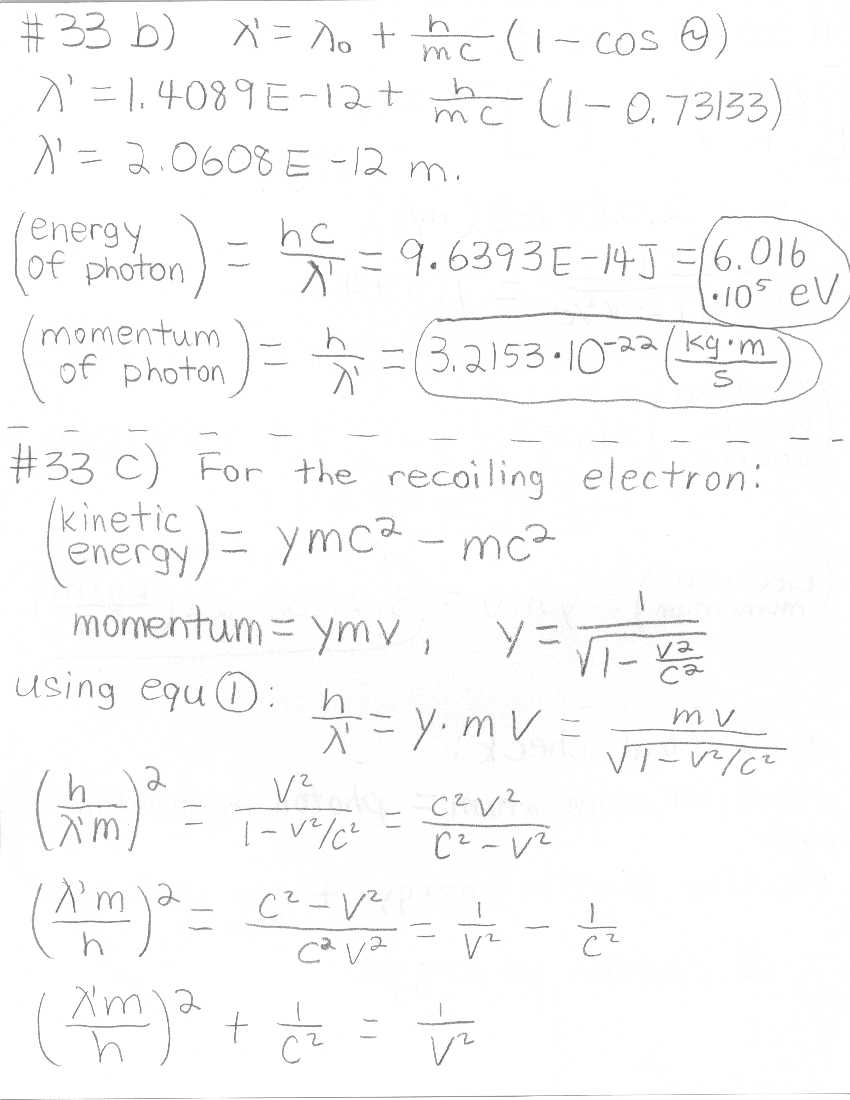 #33 b) λ' = λ₀ + h/mc (1 - cos Θ)
λ' = 1.4089E-12 + h/mc (1 - 0.73133)
λ' = 2.0608E-12 m.
(energy of photon) = hc/λ' = 9.6393E-14J = 6.016 · 10⁵ eV
(momentum of photon) = h/λ' = 3.2153 · 10⁻²² (kg·m/s)
#33 c) For the recoiling electron:
(kinetic energy) = γmc² - mc²
momentum = γmv, γ = 1/√(1 - v²/c²)
using equ ①: h/λ' = γ · mv = mv/√(1 - v²/c²)
(h/λ'm)² = v²/(1 - v²/c²) = c²v²/(c² - v²)
(λ'm/h)² = (c² - v²)/(c²v²) = 1/v² - 1/c²
(λ'm/h)² + 1/c² = 1/v²